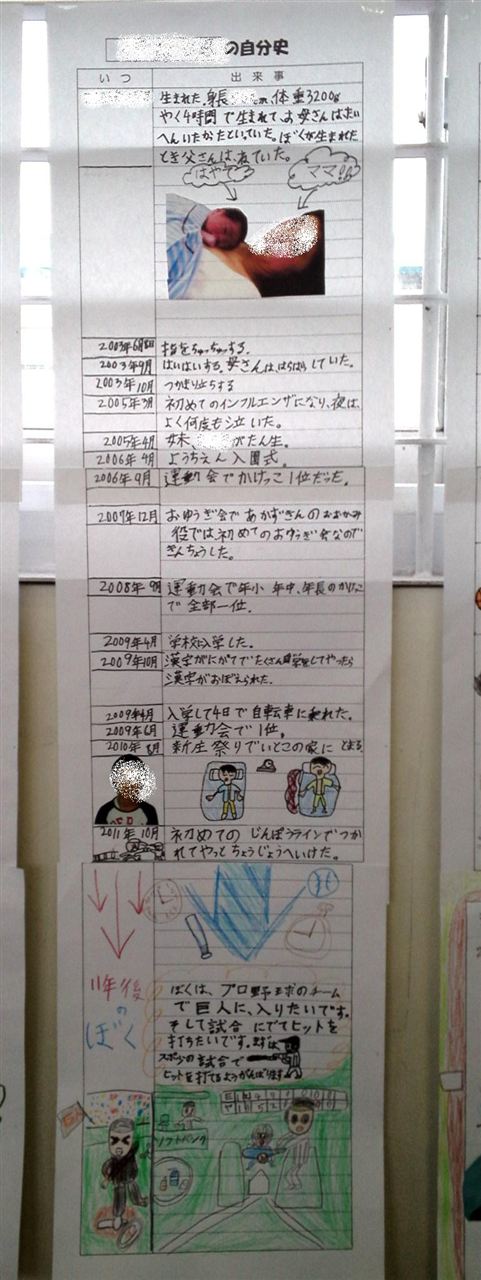 の自分史
いつ 出来事
生まれた。身長 cm、体重3200g
やく4時間で生まれて、お母さんはたい
へんいたかったといっていた。ぼくが生まれた
とき父さんは、ねていた。
はやて ママ!!
2003年6月 指をちゅっちゅっする。
2003年9月 はいはいする。母さんは、はらはらしていた。
2003年10月 つかまり立ちする
2005年3月 初めてのインフルエンザになり、夜は、
よく何度も泣いた。
2005年4月 妹、 がたん生。
2006年4月 ようちえん入園式。
2006年9月 運動会でかけっこ1位だった。
2007年12月 おゆうぎ会であかずきんのおおかみ
役では初めてのおゆうぎ会なので
きんちょうした。
2008年9月 運動会で年小 年中、年長のかけっこ
で全部一位。
2009年4月 学校に入学した。
2009年10月 漢字がにがてでたくさん してやったら
漢字がおぼえられた。
2009年4月 入学して4日で自転車に乗れた。
2009年6月 運動会で1位。
2010年8月 新庄祭りでいとこの家にとまる
2011年10月 初めてのじんぽうラインでつか
れてやっとちょうじょうへいけた。
11年後
の
ぼく
ぼくは、プロ野球のチーム
で巨人に、入りたいです。
そして試合にでてヒットを
打ちたいです。まずは
スポ少の試合で
ヒットを打てるようがんばります
ソフトバンク